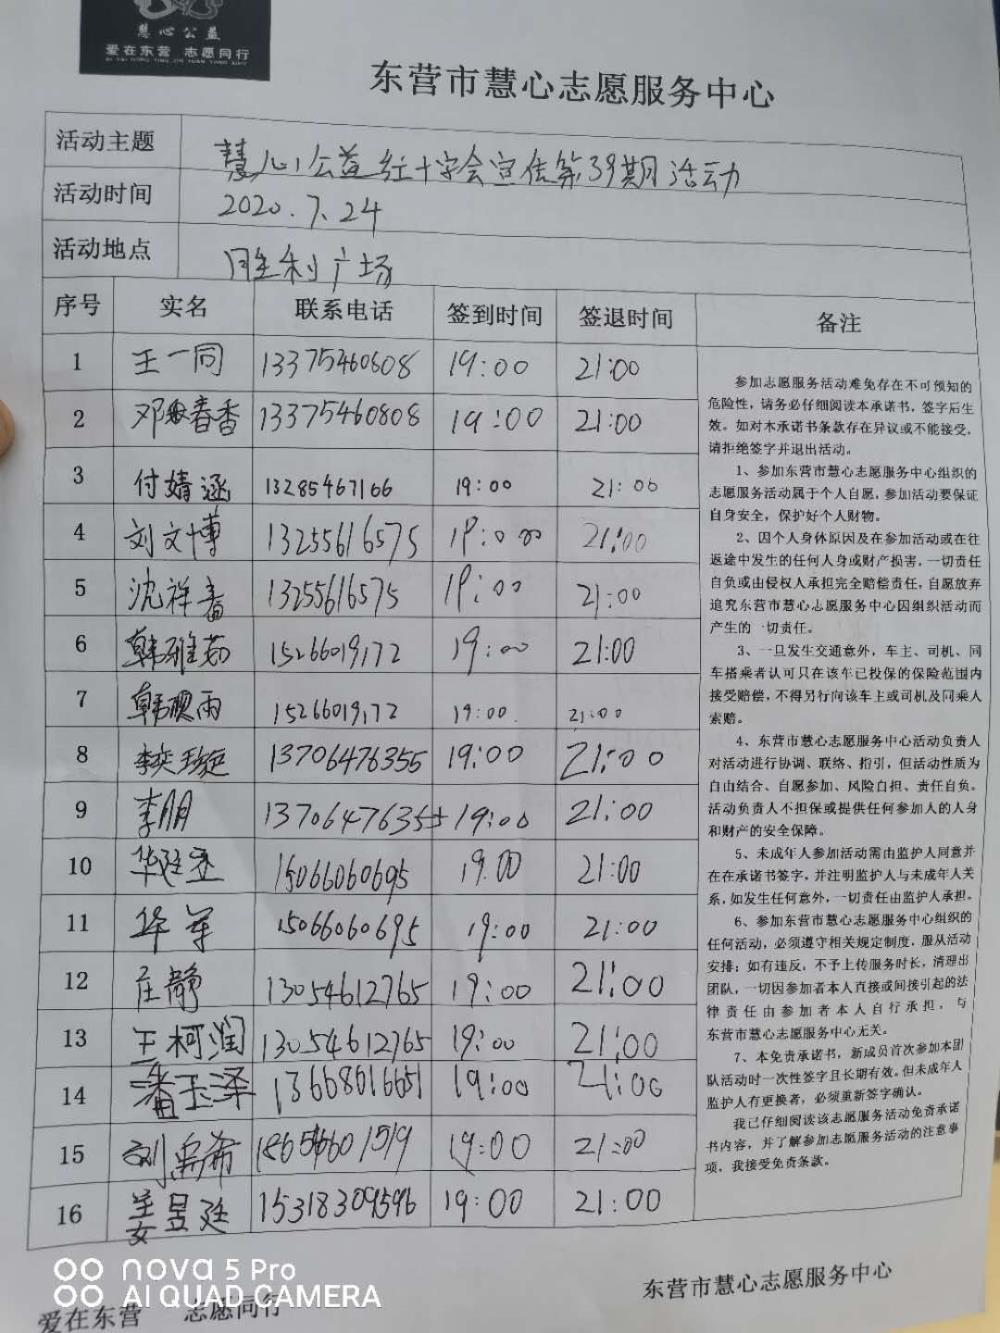 慧心公益
爱在东营 志愿同行
东营市慧心志愿服务中心
活动主题 慧心公益红十字会宣传第39期活动
活动时间 2020.7.24
活动地点 胜利广场
序号 实名 联系电话 签到时间 签退时间 备注
1 王一同 13375460808 19:00 21:00
2 邓春香 13375460808 19:00 21:00
3 付婧涵 13285467166 19:00 21:00
4 刘文博 13255616575 19:00 21:00
5 沈祥 13255616575 19:00 21:00
6 韩雅茹 15266019172 19:00 21:00
7 韩雨 15266019172 19:00 21:00
8 李奕璇 13706476355 19:00 21:00
9 李朋 13706476355 19:00 21:00
10 华廷 15066060695 19:00 21:00
11 华军 15066060695 19:00 21:00
12 庄静 13054612765 19:00 21:00
13 王柯润 13054612765 19:00 21:00
14 潘玉泽 13668616651 19:00 21:00
15 刘禹希 19:00 21:00
16 姜昱廷 15318309596 19:00 21:00
参加志愿服务活动难免存在不可预知的
危险性，请务必仔细阅读本承诺书，签字后生
效。如对本承诺书条款存在异议或不能接受，
请拒绝签字并退出活动。
1、参加东营市慧心志愿服务中心组织的
志愿服务活动属于个人自愿，参加活动要保证
自身安全，保护好个人财物。
2、因个人身体原因及在参加活动或在往
返途中发生的任何人身或财产损害，一切责任
自负或由侵权人承担完全赔偿责任，自愿放弃
追究东营市慧心志愿服务中心因组织活动而
产生的一切责任。
3、一旦发生交通意外，车主、司机、同
车搭乘者认可只在该车已投保的保险范围内
接受赔偿，不得另行向该车主或司机及同乘人
索赔。
4、东营市慧心志愿服务中心活动负责人
对活动进行协调、联络、指引，但活动性质为
自由结合、自愿参加、风险自担、责任自负。
活动负责人不担保或提供任何参加人的人身
和财产的安全保障。
5、未成年人参加活动需由监护人同意并
在在承诺书签字，并注明监护人与未成年人关
系，如发生任何意外，一切责任由监护人承担。
6、参加东营市慧心志愿服务中心组织的
任何活动，必须遵守相关规定制度，服从活动
安排；如有违反，不予上传服务时长，清理出
团队，一切因参加者本人直接或间接引起的法
律责任由参加者本人自行承担，与
东营市慧心志愿服务中心无关。
7、本免责承诺书，新成员首次参加本团
队活动时一次性签字且长期有效。但未成年人
监护人有更换者，必须重新签字确认。
我已仔细阅读该志愿服务活动免责承诺
书内容，并了解参加志愿服务活动的注意事
项，我接受免责条款。
nova 5 Pro
AI QUAD CAMERA
爱在东营 志愿同行
东营市慧心志愿服务中心